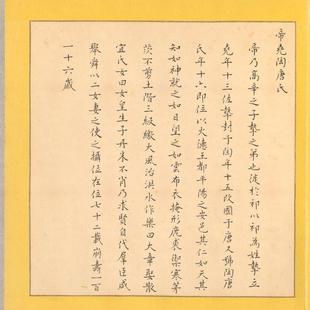 帝堯陶唐氏
帝乃高辛之子摯之弟也徙於祁以祁為姓摯立
堯年十三位摯封于陶年十五改國于唐又號陶唐
氏年十六即位以火德王都平陽之安邑其仁如天其
知如神就之如日望之如雲布衣掩形鹿裘禦寒茅
茨不剪土階三級繳大風治洪水作樂曰大章娶散
宜氏女曰女皇生子丹朱不肖乃求賢自代群臣咸
舉舜以二女妻之使之攝位在位七十二載崩壽一百
一十六歲